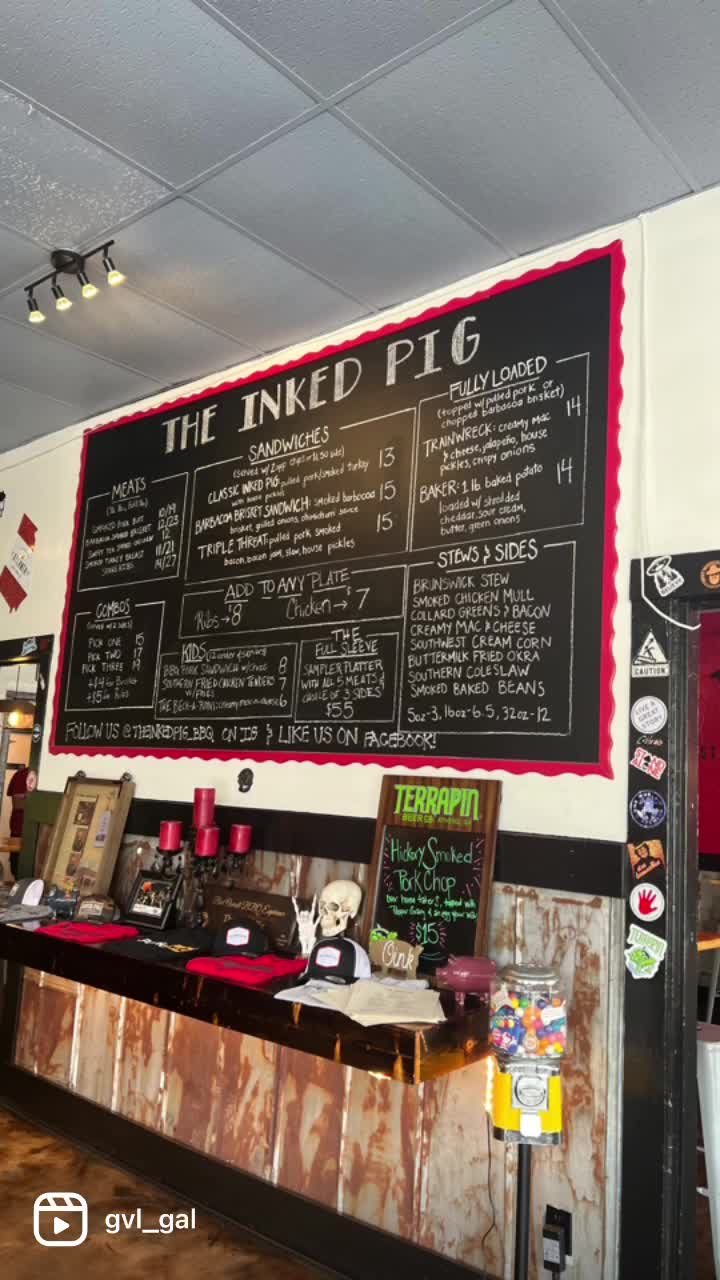 THE INKED PIG
MEATS
SMOKED PORK BUTT 10/19
BARBACOA SMOKED BRISKET 12/23
12
SMOKED TURKEY BREAST 11/21
14/27
COMBOS
PICK ONE 15
PICK TWO 17
PICK THREE 19
+$4 for Brisket
+$5 for Ribs
SANDWICHES
CLASSIC INKED PIG: pulled pork/smoked turkey 13
with house pickles
BARBACOA BRISKET SANDWICH: smoked barbacoa 15
brisket, grilled onions, chimichurri sauce
TRIPLE THREAT: pulled pork, smoked 15
bacon, bacon jam, slaw, house pickles
ADD TO ANY PLATE
Ribs → $8 Chicken → $7
KIDS
BBQ PORK SANDWICH 8
SOUTHERN FRIED CHICKEN TENDERS 7
w/fries
THE BECK-A-RONI: creamy mac & cheese 6
THE
FULL SLEEVE
SAMPLER PLATTER
WITH ALL 5 MEATS &
CHOICE OF 3 SIDES
$55
FULLY LOADED
(topped w/ pulled pork or
chopped barbacoa brisket)
TRAINWRECK: creamy mac 14
& cheese, jalapeño, house
pickles, crispy onions
BAKER: 1 lb baked potato 14
loaded w/ shredded
cheddar, sour cream,
butter, green onions
STEWS & SIDES
BRUNSWICK STEW
SMOKED CHICKEN MULL
COLLARD GREENS & BACON
CREAMY MAC & CHEESE
SOUTHWEST CREAM CORN
BUTTERMILK FRIED OKRA
SOUTHERN COLESLAW
SMOKED BAKED BEANS
5oz-3, 16oz-6.5, 32oz-12
FOLLOW US @THEINKEDPIG_BBQ ON IG & LIKE US ON FACEBOOK!
TERRAPIN
BEER CO. ATHENS, GA
Hickory Smoked
Pork Chop
$15
Oink
CAUTION
LIVE A
GREAT
STORY
TERRAPIN
gvl_gal